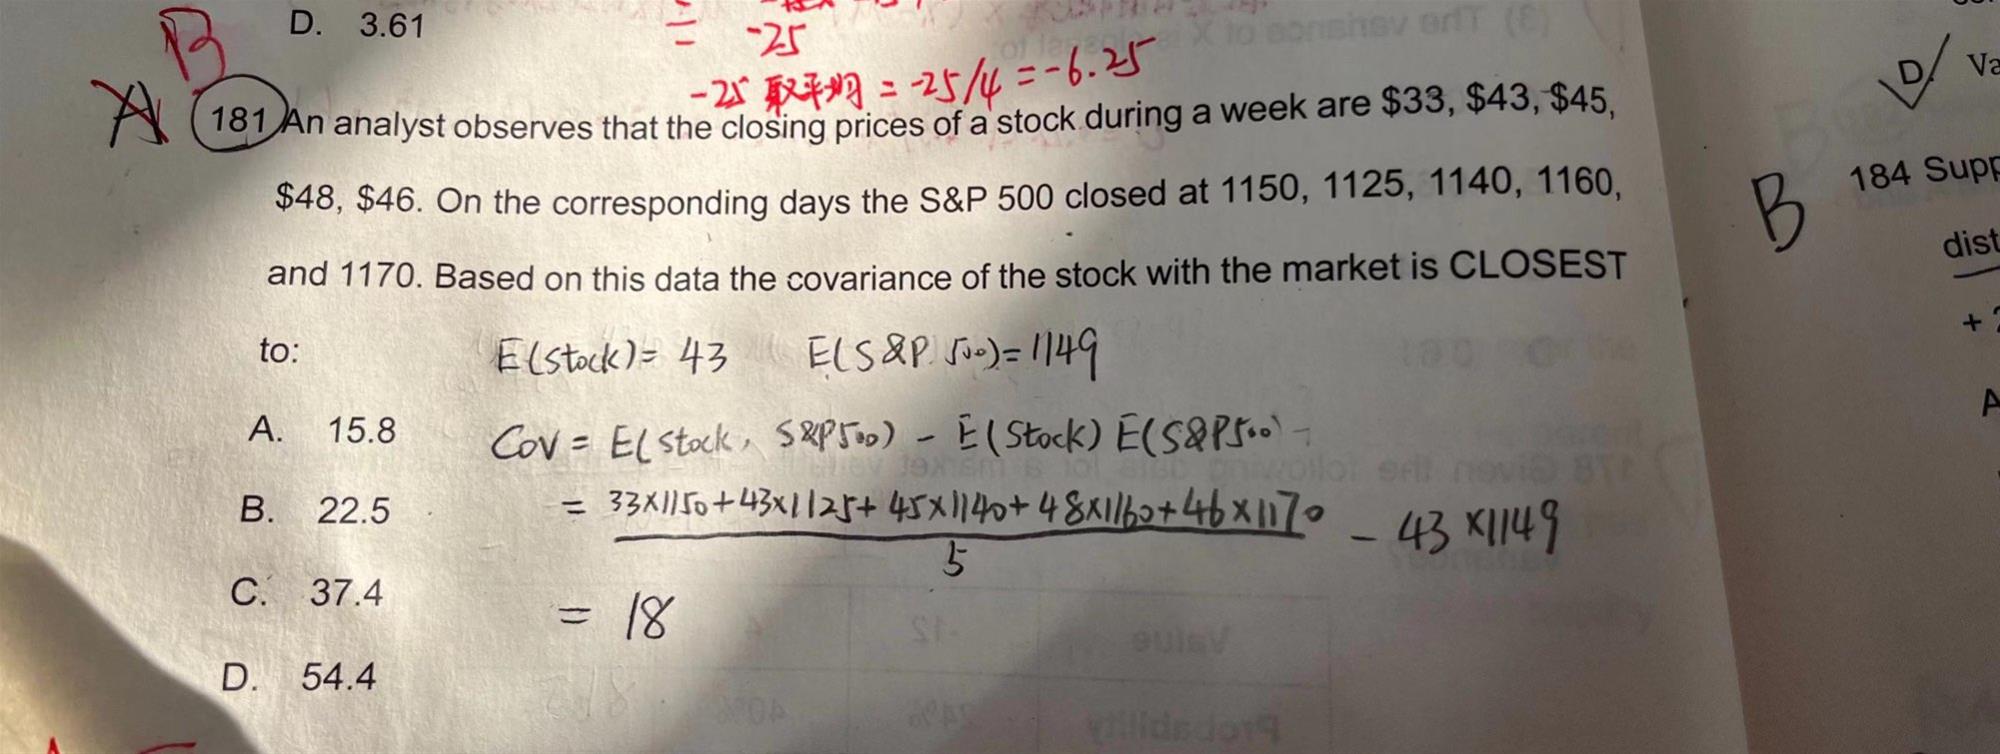 D. 3.61
= -25
-25 取平均 = -25/4 = -6.25
B
A 181 An analyst observes that the closing prices of a stock during a week are $33, $43, $45,
$48, $46. On the corresponding days the S&P 500 closed at 1150, 1125, 1140, 1160,
and 1170. Based on this data the covariance of the stock with the market is CLOSEST
to: E(stock)= 43 E(S&P 500)=1149
A. 15.8 COV = E(stock, S&P500) - E(Stock) E(S&P500)
B. 22.5 = 33×1150+43×1125+45×1140+48×1160+46×1170 - 43×1149
5
C. 37.4 = 18
D. 54.4
D Va
B 184 Supp
dist
+ 2
A